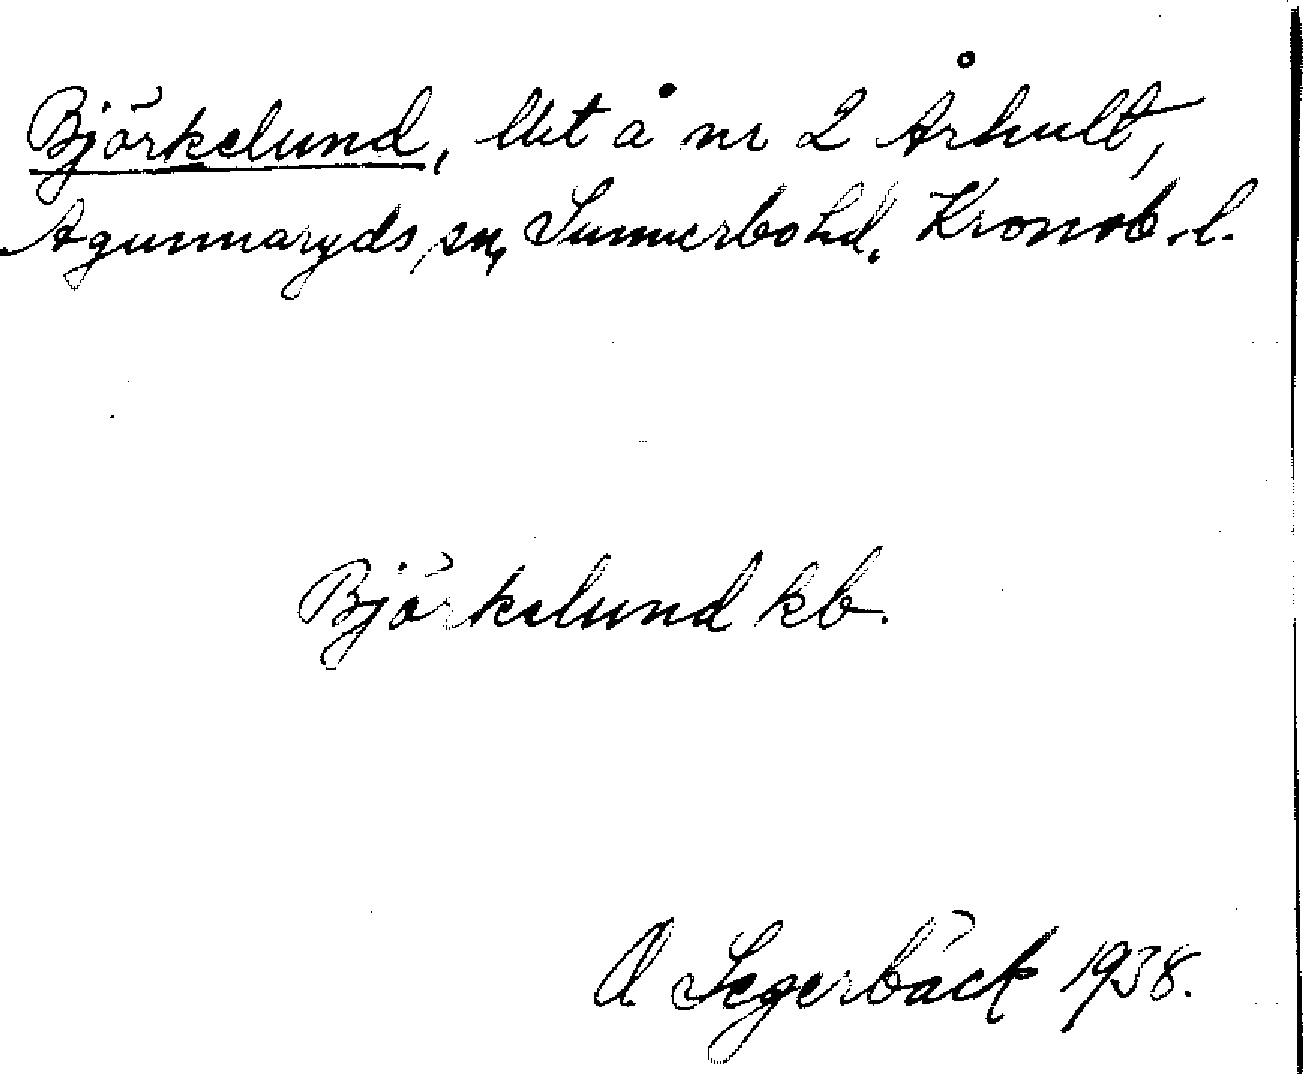 Björkelund, lht å nr 2 Århult,
Agunnaryds sn, Sunnerbo hd, Kronob. l.
Björkelund kb.
O Segerbäck 1938.